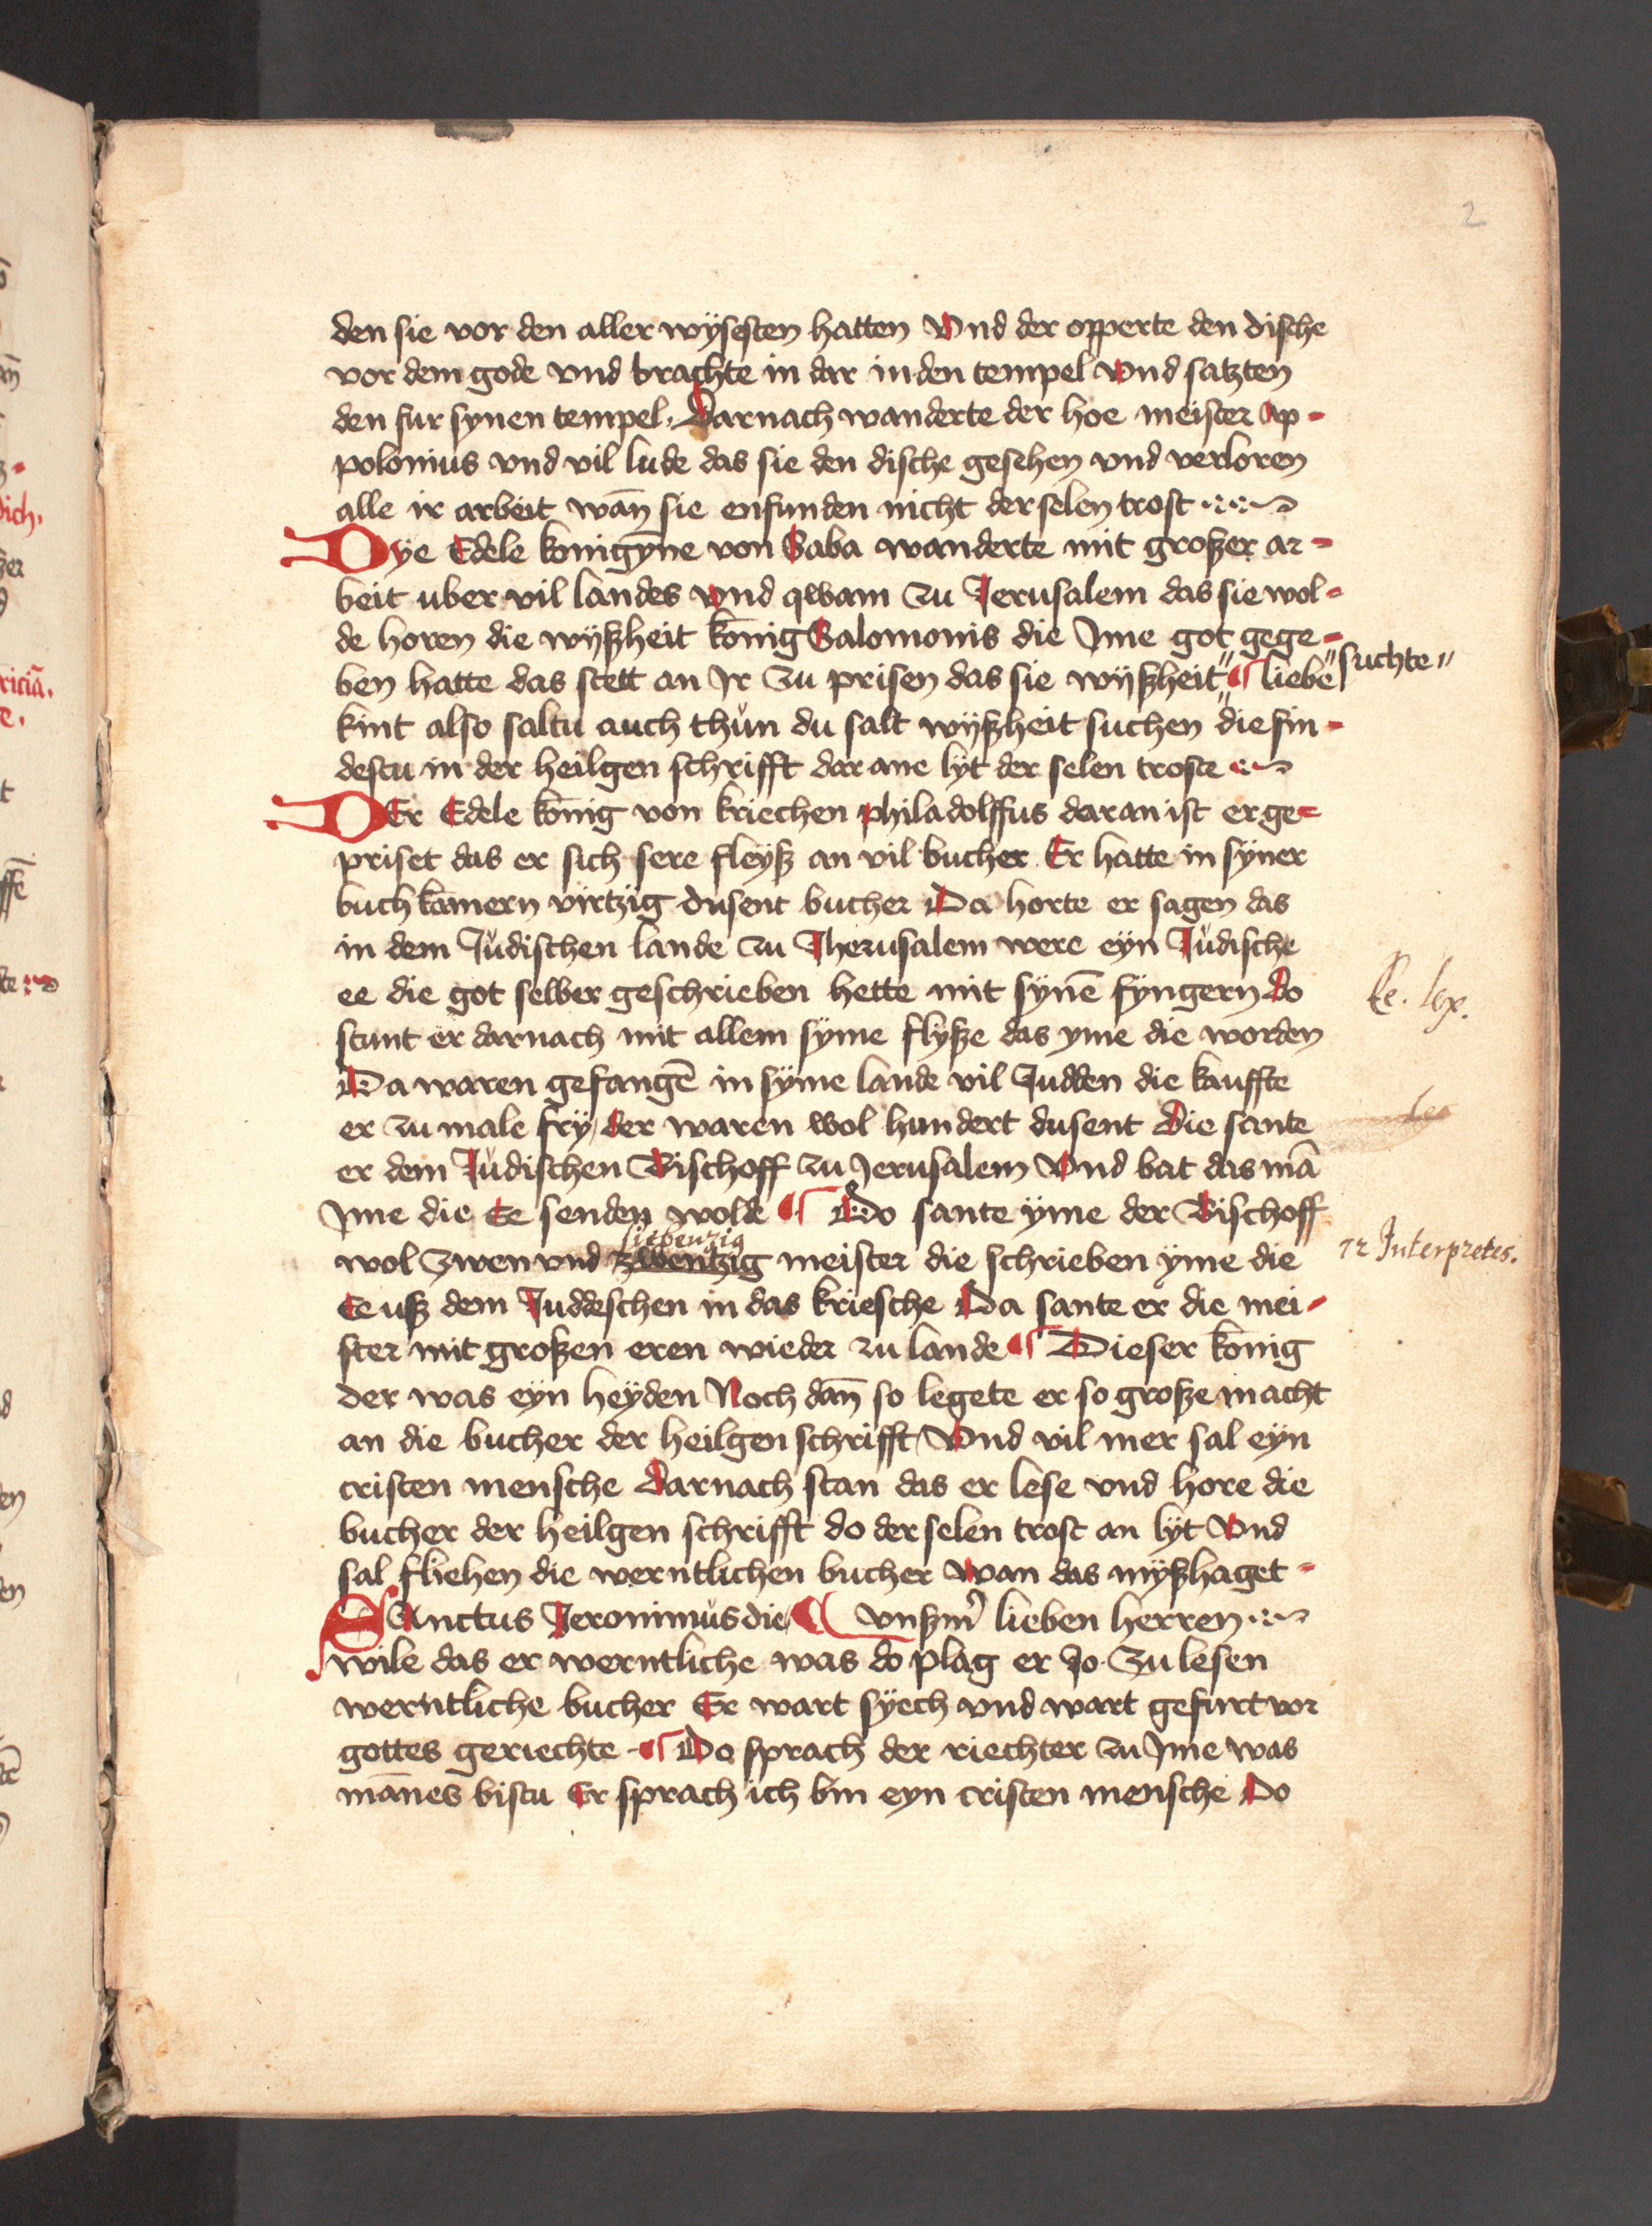 2
den sie vor den aller wÿsesten hatten Vnd der opperte den dische
vor dem gode vnd brachte in dar in den tempel vnd satzten
den fur synen tempel. Darnach wanderte der hoe meister Ap-
polonius vnd vil lude das sie den dische gesehen vnd verloren
alle ir arbeit wañ sie enfunden nicht der selen trost
Dye Edele konigÿne von Saba wanderte mit großer ar-
beit uber vil landes vnd qwam zu Jerusalem das sie wol-
de horen die wÿßheit konig Salomonis die Jme got gege-
ben hatte das stett an Jr zu prisen das sie wÿßheit" ¶ liebe "suchte"
kint also saltu auch thůn du salt wÿßheit suchen die fin-
destu in der heilgen schrifft dar ane lÿt der selen troste
DEr Edele konig von kriechen philadolffus daran ist er ge-
priset das er sich sere fleÿß an vil bucher Er hatte in sÿner
buchkamern virtzig dusent bucher Da horte er sagen das
in dem Jůdischen lande zu Jherusalem were eÿn Jůdische
ee die got selber geschrieben hette mit sÿnē fyngern do
Ee. lex.
stunt er darnach mit allem sÿme flÿße das yme die worden
Da waren gefangē in sÿme lande vil Judden die kauffte
er zu male frÿ / der waren wol hundert dusent Die sante
er dem Jůdischen Bischoff zu Jerusalem Vnd bat das mā
Jme die Ee senden wolde ¶ Do sante ÿme der Bischoff
siebenzig
wol zwen vnd zwentzig meister die schrieben ÿme die
72 Interpretes.
Ee uß dem Juddeschen in das kriesche Da sante er die mei-
ster mit großen eren wieder zu lande ¶ Dieser konig
der was eyn heÿden Noch dañ so legete er so große macht
an die bucher der heilgen schrifft / Vnd vil mer sal eÿn
cristen mensche darnach stan das er lese vnd hore die
bucher der heilgen schrifft do der selen trost an lÿt Vnd
sal fliehen die werntlichen bucher wan das mÿßhaget-
SAnctus Jeronimus die ¶ vnßm̄ lieben herren
wile das er werntliche was do plag er Jo zu lesen
werntliche bucher Er wart sÿech vnd wart gefurt vor
gottes geriechte - ¶ Do sprach der riechter zu Jme was
mānes bistu Er sprach ich bin eyn cristen mensche Do